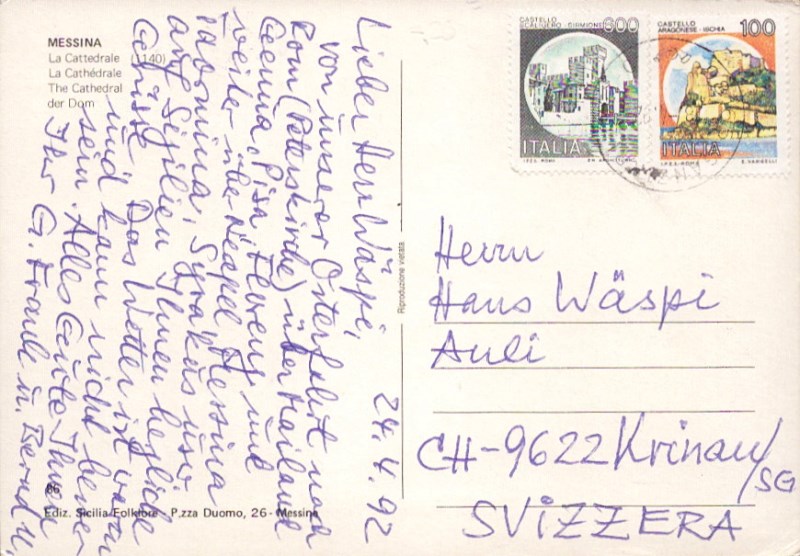 MESSINA
La Cattedrale (1140)
La Cathédrale
The Cathedral
der Dom
24.4.92
Lieber Herr Wäspi,
von unserer Osterfahrt nach
Rom (Peterskirche) über Mailand
Pisa, Florenz und
weiter über Neapel, Messina
Taormina, Syrakus usw
auf Sizilien Ihnen herzliche
Grüsse. Das Wetter ist warm
und kann nicht besser
sein. Alles Gute
Ihre G. u. Bernd
66
Ediz. Sicilia Folklore - P.zza Duomo, 26 - Messina
Riproduzione vietata
CASTELLO
SCALIGERO - SIRMIONE 600
ITALIA
I.P.Z.S. ROMA
CASTELLO
ARAGONESE - ISCHIA 100
ITALIA
I.P.Z.S. - ROMA
Herrn
Hans Wäspi
Auli
CH-9622 Krinau/
SG
SVIZZERA